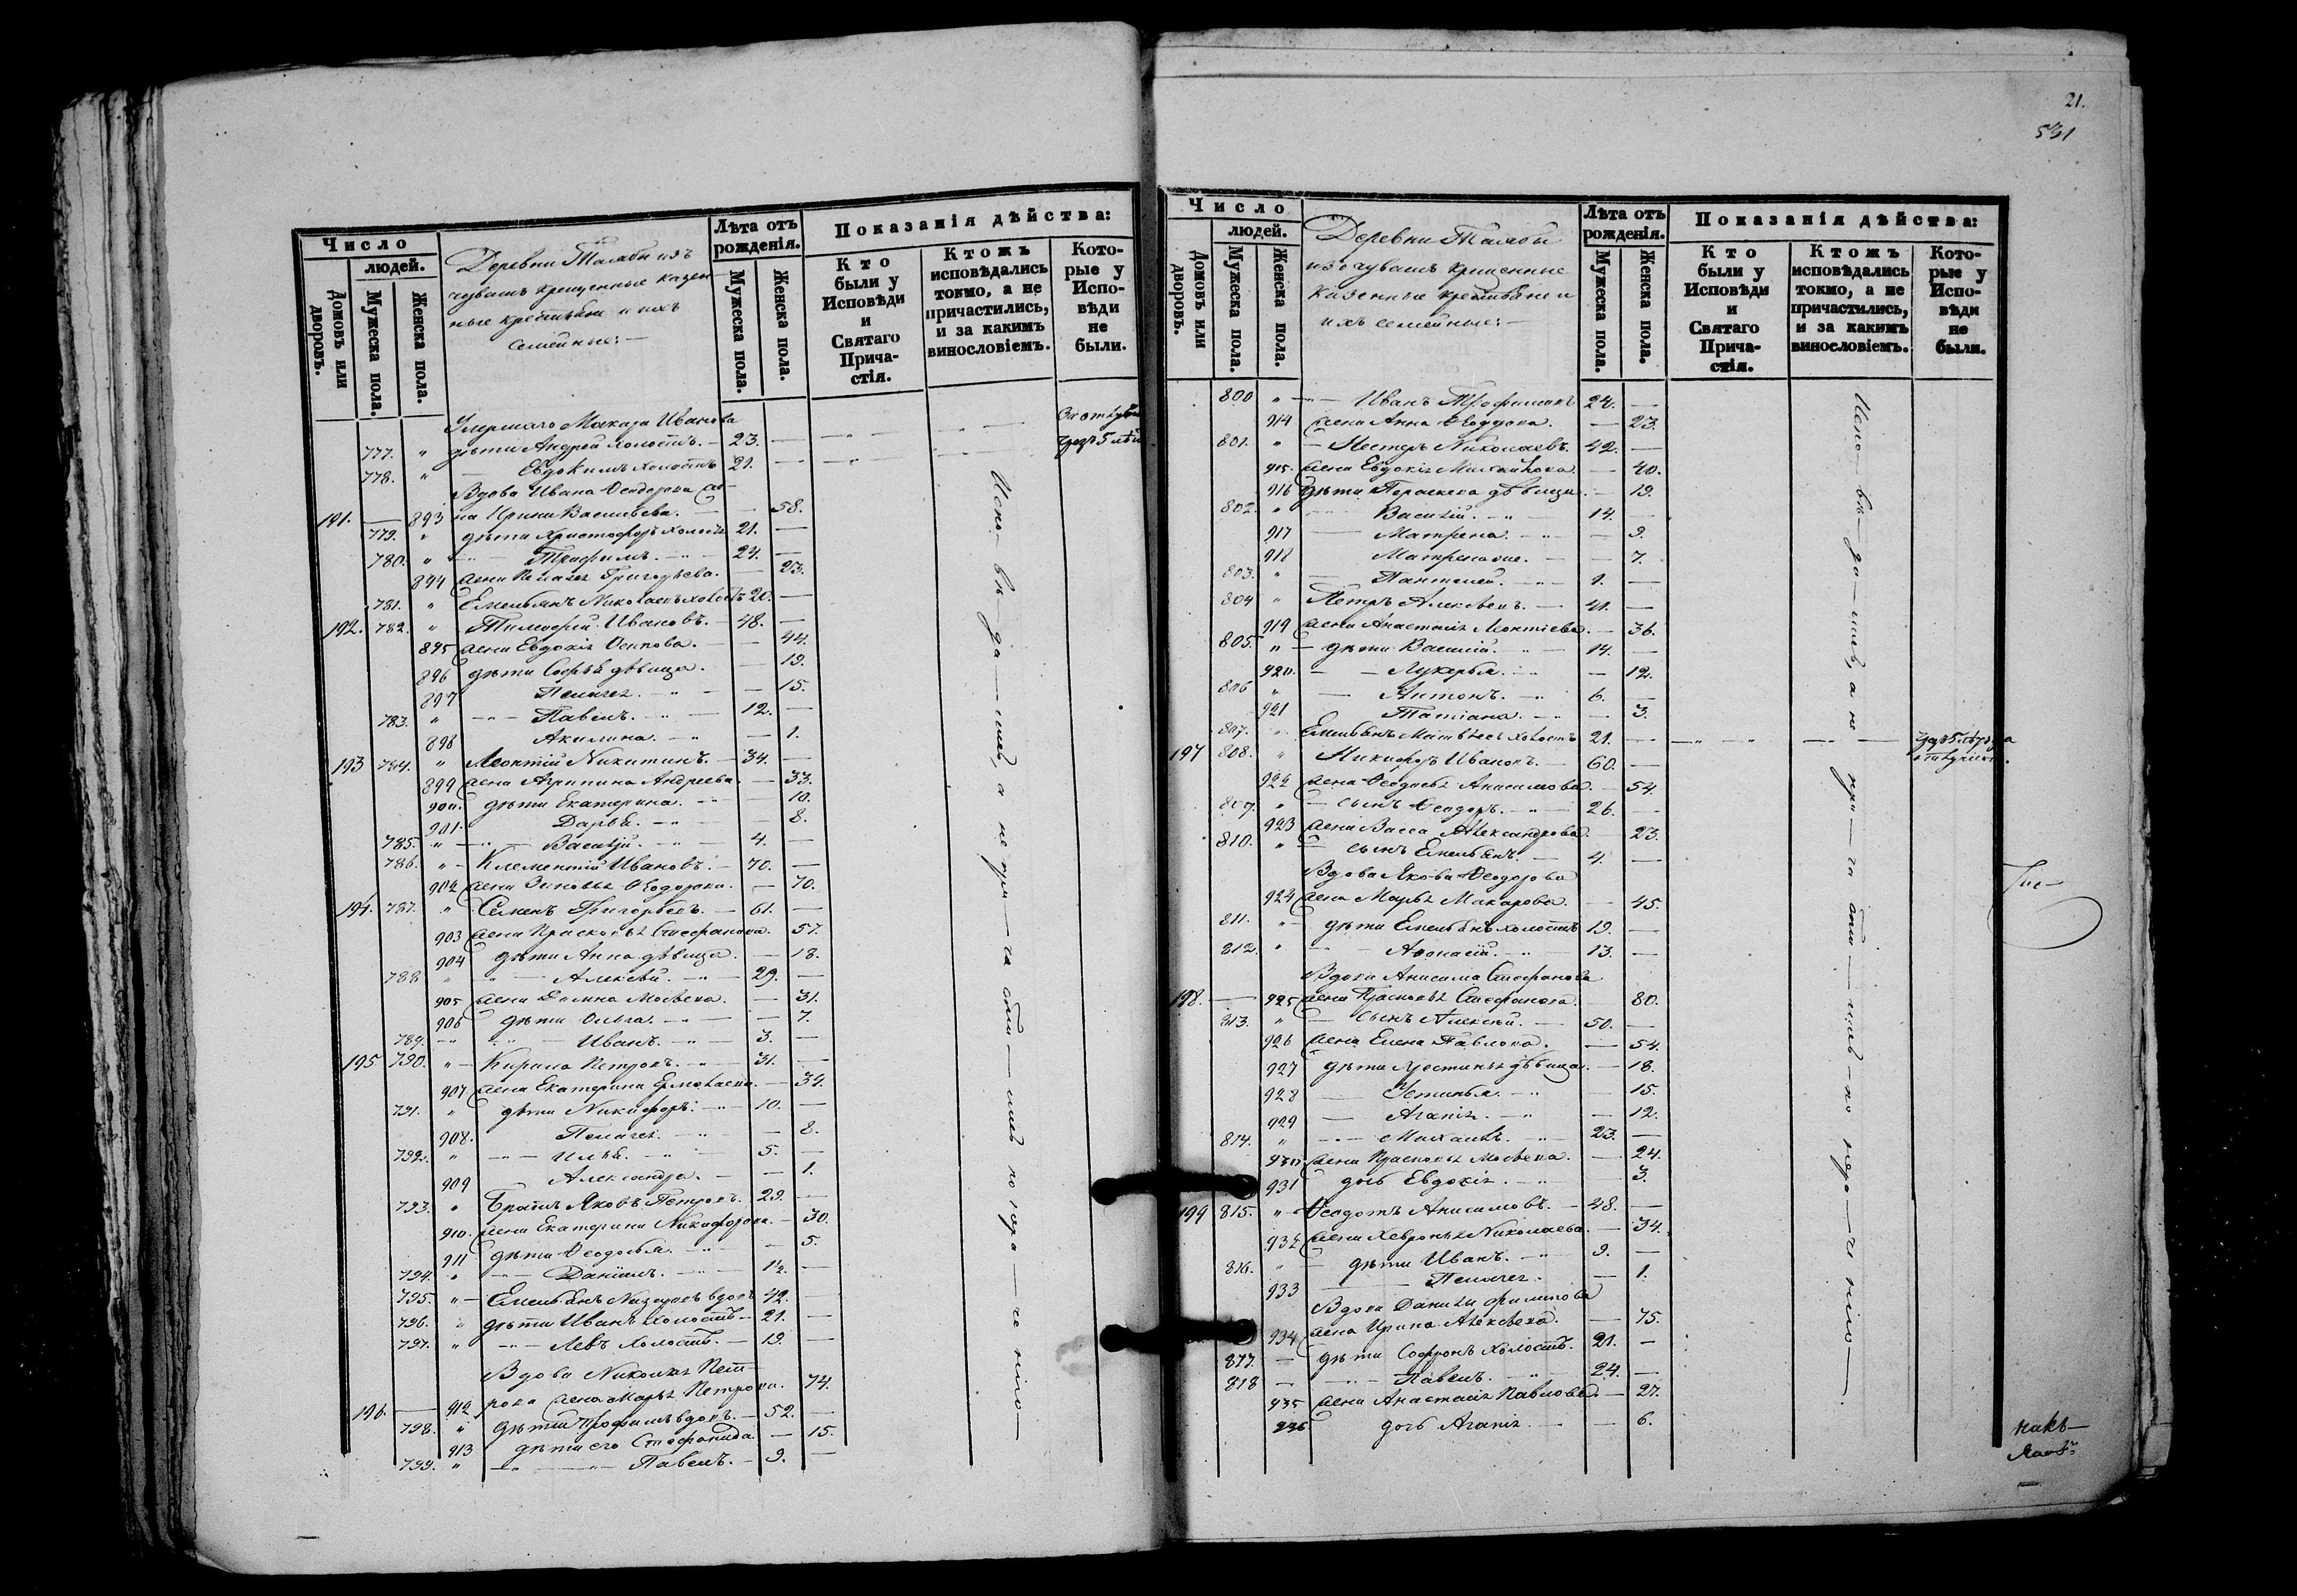 Число
людей.
Домовъ или дворовъ.
Мужеска пола.
Женска пола.
Деревни Талабы изъ
чувашъ крещенные казен-
ные крестьяне и ихъ
семейные: —
Лѣта отъ рожденія.
Мужеска пола.
Женска пола.
Показанія дѣйства:
Кто были у Исповѣди и Святаго Прича-стія.
Ктожъ исповѣдались токмо, а не причастились, и за какимъ винословіемъ.
Кото-рые у Испо-вѣди не были.
Умершаго Макара Иванова
777. " дѣти Андрей холостъ. — 23. —
778. " — Евдокимъ холостъ 21. —
Вдова Ивана Ѳеодорова же-
191. — 893 на Ирина Васильева. — — 58.
779. " дѣти Христофоръ холостъ 21. —
780. " — Трофимъ. — " — 24. —
894 жена Пелагея Григорьева. — 23.
781. " Емельянъ Николаевъ холостъ 20. —
192. 782. " Тимофей Ивановъ. — 48. —
895 жена Евдокія Осипова. — — 44.
896 дѣти Софья дѣвица. — 19.
897 Пелагея. — " — — 15.
783. " — " — Павелъ. — " — 12. —
898 Акилина. — " — 1.
193 784. " Леонтій Никитинъ. — 34. —
899 жена Агрипина Андреева. — 33.
900. дѣти Екатерина. — " — 10.
901. Дарья. — " — 8.
785. " — " — Василій. — " — 4. —
786. " — Клементій Ивановъ. — 70. —
902 жена Зиновья Ѳеодорова. — 70.
194. 787. " Семенъ Григорьевъ. — 61. —
903 жена Прасковья Стефанова. 57.
904 дѣти Анна дѣвица. — 18.
788 " — Алексѣй. — " — 29. —
905 жена Домна Моѵсеева. — 31.
906 дѣти Ольга. — " — — 7.
789. — " — Иванъ. — " — 3. —
195 790. " — Кирила Петровъ. — " — 31. —
907 жена Екатерина Ермолаева. — 34.
791. " дѣти Никифоръ. — " — 10. —
908. Пелагея. — " — — 8.
792. " — " — Илья. — " — 5. —
909 Александра. — — 1.
793. " Братъ Яковъ Петровъ. 29. —
910. жена Екатерина Никифорова. — 30.
911 дѣти Ѳеодосья. — " — — 5.
794. " — — Даніилъ. — " — 1½. —
795. " — Емельянъ Назаровъ вдовъ 42. —
796. " дѣти Иванъ холостъ — 21. —
797. " — " — Левъ холостъ. — 19. —
Вдова Николая Пет-
196. — 912 рова жена Марья Петрова. 74.
798. " дѣти Трофимъ вдовъ. — 52. —
913 дѣти его Стефанида — 15.
799. " — " — Павелъ. — 9. —
чрезъ 5 лѣтъ
Испо — вѣ — да — лись, а не при — ча сти — лись по 
21.
531
Число
людей.
Домовъ или дворовъ.
Мужеска пола.
Женска пола.
Деревни Талабы
изъ чувашъ крещенные
казенные крестьяне и
ихъ семейные: —
Лѣта отъ рожденія.
Мужеска пола.
Женска пола.
Показанія дѣйства:
Кто были у Исповѣди и Святаго Прича-стія.
Ктожъ исповѣдались токмо, а не причастились, и за какимъ винословіемъ.
Кото-рые у Испо-вѣди не были.
800 " — — Иванъ Трофимовъ 24. —
914 жена Анна Ѳеодорова. — 23.
801. " — Нестеръ Николаевъ. 42. —
915. жена Евдокія Михайлова. — 40.
916 дѣти Параскева дѣвица. — 19.
802. " — Василій. — " — 14. —
917 — Матрена. — " — — 9.
918 Матрена же. — — 7.
803. " — Пантелей. — " — 1. —
804 " Петръ Алексѣевъ. — 41. —
919 жена Анастасія Леонтіева. — 36.
805. " — дѣти Василій. " — 14. —
920. — — Лукерья. — " — 12.
806 " — Антонъ. — " 6. —
921 Татіана. — " — 3.
807. " Емельянъ Матвѣевъ холостъ 21. —
197 808. " Никифоръ Ивановъ. — 60. —
922 жена Ѳеодосья Анисимова. — 54.
809. " — сынъ Ѳеодоръ. — " — 26. —
923 жена Васса Александрова. — 23.
810. " — сынъ Емельянъ. — 4. —
Вдова Якова Ѳеодорова
924 жена Марья Макарова. — 45.
811. " — дѣти Емельянъ холостъ 19. —
812. " — Аѳонасій. — " — 13. —
Вдова Анисима Стефанова
198. — 925 жена Прасковья Стефанова. — 80.
813. " — сынъ Алексѣй. — 50. —
926 жена Елена Павлова. — 54.
927 дѣти Хрестинья дѣвица. — 18.
928 — Устинья. — " — 15.
929 — Агапія. — " — 12.
814. " — — Михаилъ. — " — 23. —
930 жена Прасковья Моѵсеева. — 24.
931 дочь Евдокія. — " 3.
199 815. " — Ѳеодотъ Анисимовъ. — 48. —
932 жена Хевронья Николаева. — 34.
816. " — дѣти Иванъ. — " 9. —
933 — Пелагея. — 1.
Вдова Данила Филипова
934 жена Ирина Алексѣева. — 75.
817. — дѣти Софронъ холостъ. 21. —
818 — — " — Павелъ. — " 24. —
935 жена Анастасія Павлова. — 27.
936 дочь Агапія. — — 6.
чрезъ 5 лѣтъ за
Испо — вѣ — да — лись, а не при — ча сти — лись по